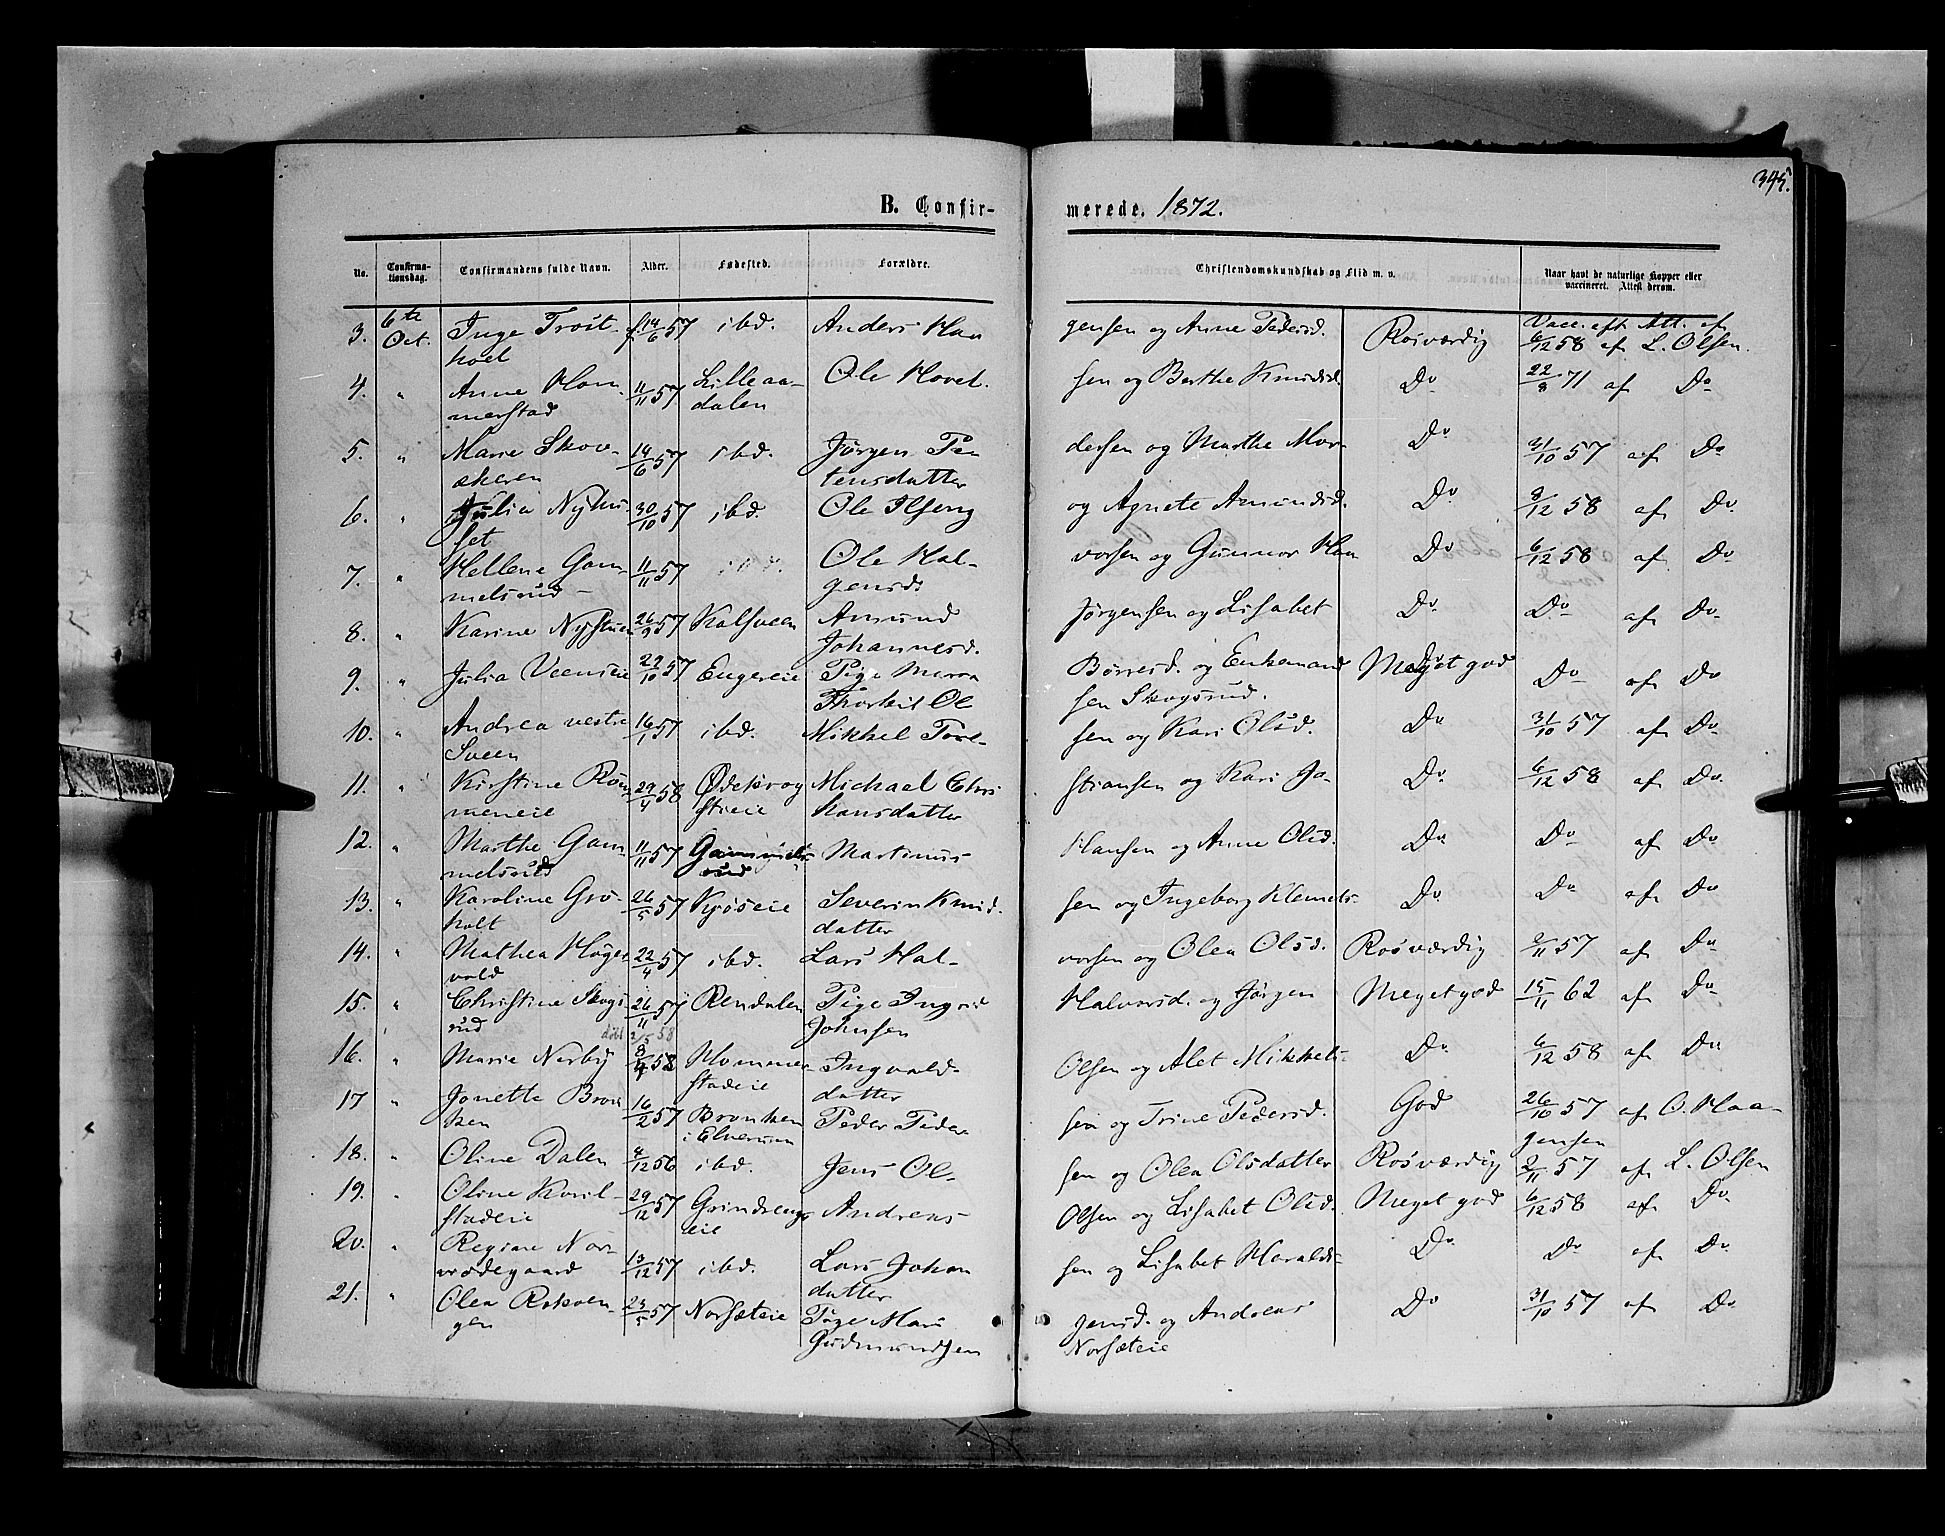 345.
B. Confir-
merede. 1872.
No.
Confirma-
tionsdag.
Confirmandens fulde Navn.
Alder.
Fødested.
Forældre.
Christendomskundskab og Flid m. v.
Naar havt de naturlige Kopper eller
vaccineret. Attest derom.
3. 6te Inge Troit- f. 14/6 57 ibd. Anders Han gensen og Anne Pedersd. Rosværdig Vacc. eft Att. af
Oct. hoel 6/12 58 af L. Olsen.
4. " Anne Ham- 11/11 57 Lilleaa- Ole Hovel- sen og Berthe Knudsd. Do 22/8 71 af Do
merstad dalen
5. " Marie Skov- 14/6 57 ibd. Jørgen Pe- dersen og Marthe Mor- Do 31/10 57 af Do
akeren tensdatter
6. " Julia Nyhu- 30/10 57 ibd. Ole Ilseng og Agnete Amundsd. Do 8/12 58 af Do
set
7. " Hellene Gam- 11/11 57 ibd. Ole Hal- vorsen og Gunnor Haa Do 6/12 58 af Do
melsrud gensd.
8. " Karine Nystuen 26/9 57 Kalsveen Amund Jørgensen og Lisabet Do Do af Do
Johannesd.
9. " Julia Veenseie 29/10 57 Engereie Pige Maren Børresd. og Enkemand Meget god Do af Do
Thorkil Ol sen Skogsrud.
10. " Andrea vestre 16/1 57 ibd. Mikkel Tore- sen og Kari Olsd. Do 31/10 57 af Do
Sveen
11. " Kirstine Røn- 29/4 58 Ødekvog Michael Chri stiansen og Kari Jo- Do 6/12 58 af Do
meneie stieie hansdatter
12. " Marthe Gam- 11/11 57 Gammels- Martinus Hansen og Anne Olsd. Do Do af Do
melsrud rud
13. " Karoline Grø- 26/5 57 Kjøseie Severin Knud- sen og Ingeborg Klemets- Do Do af Do
holt datter
14. " Mathea Høge- 22/4 57 ibd. Lars Hal- vorsen og Olea Olsd. Rosværdig 2/11 57 af Do
vold
15. " Christine Skogs 26/11 57 Rendalen Pige Ingrid Halvorsd. og Jørgen Meget god 15/11 62 af Do
rud Johnsen
døbt 2/5 58
16. " Marie Nerby 8/4 58 Hommer- Ingvald Olsen og Alet Mikkels- Do 6/12 58 af Do
stadeie datter
17 " Jonette Bron- 16/2 57 Bronken Peder Peder- sen og Trine Pedersd. God 26/10 57 af O. Haa-
ken i Elverum gensen
18. " Oline Dalen 4/12 56 ibd. Jens Ol- sen og Olea Olsdatter Rosværdig 2/11 57 af L. Olsen
19. " Oline Kvril- 29/12 57 Grindrengs Andreas Olsen og Lisabet Olsd. Meget god 6/12 58 af Do
stadeie eie
20. " Regine Nor- 13/12 57 ibd. Lars Johan sen og Lisabet Haralds- Do Do af Do
vrødegaard datter
21. " Olea Rokoen- 23/5 57 Norsæteie Pige Mari gensd. og Andreas Do 31/10 57 af Do
gen Gudmundsen Norsæteie